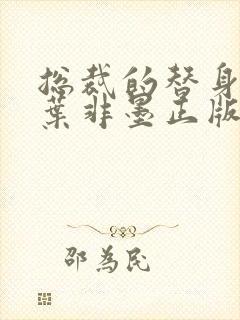 总裁的替身
葉非墨正版
邵為民